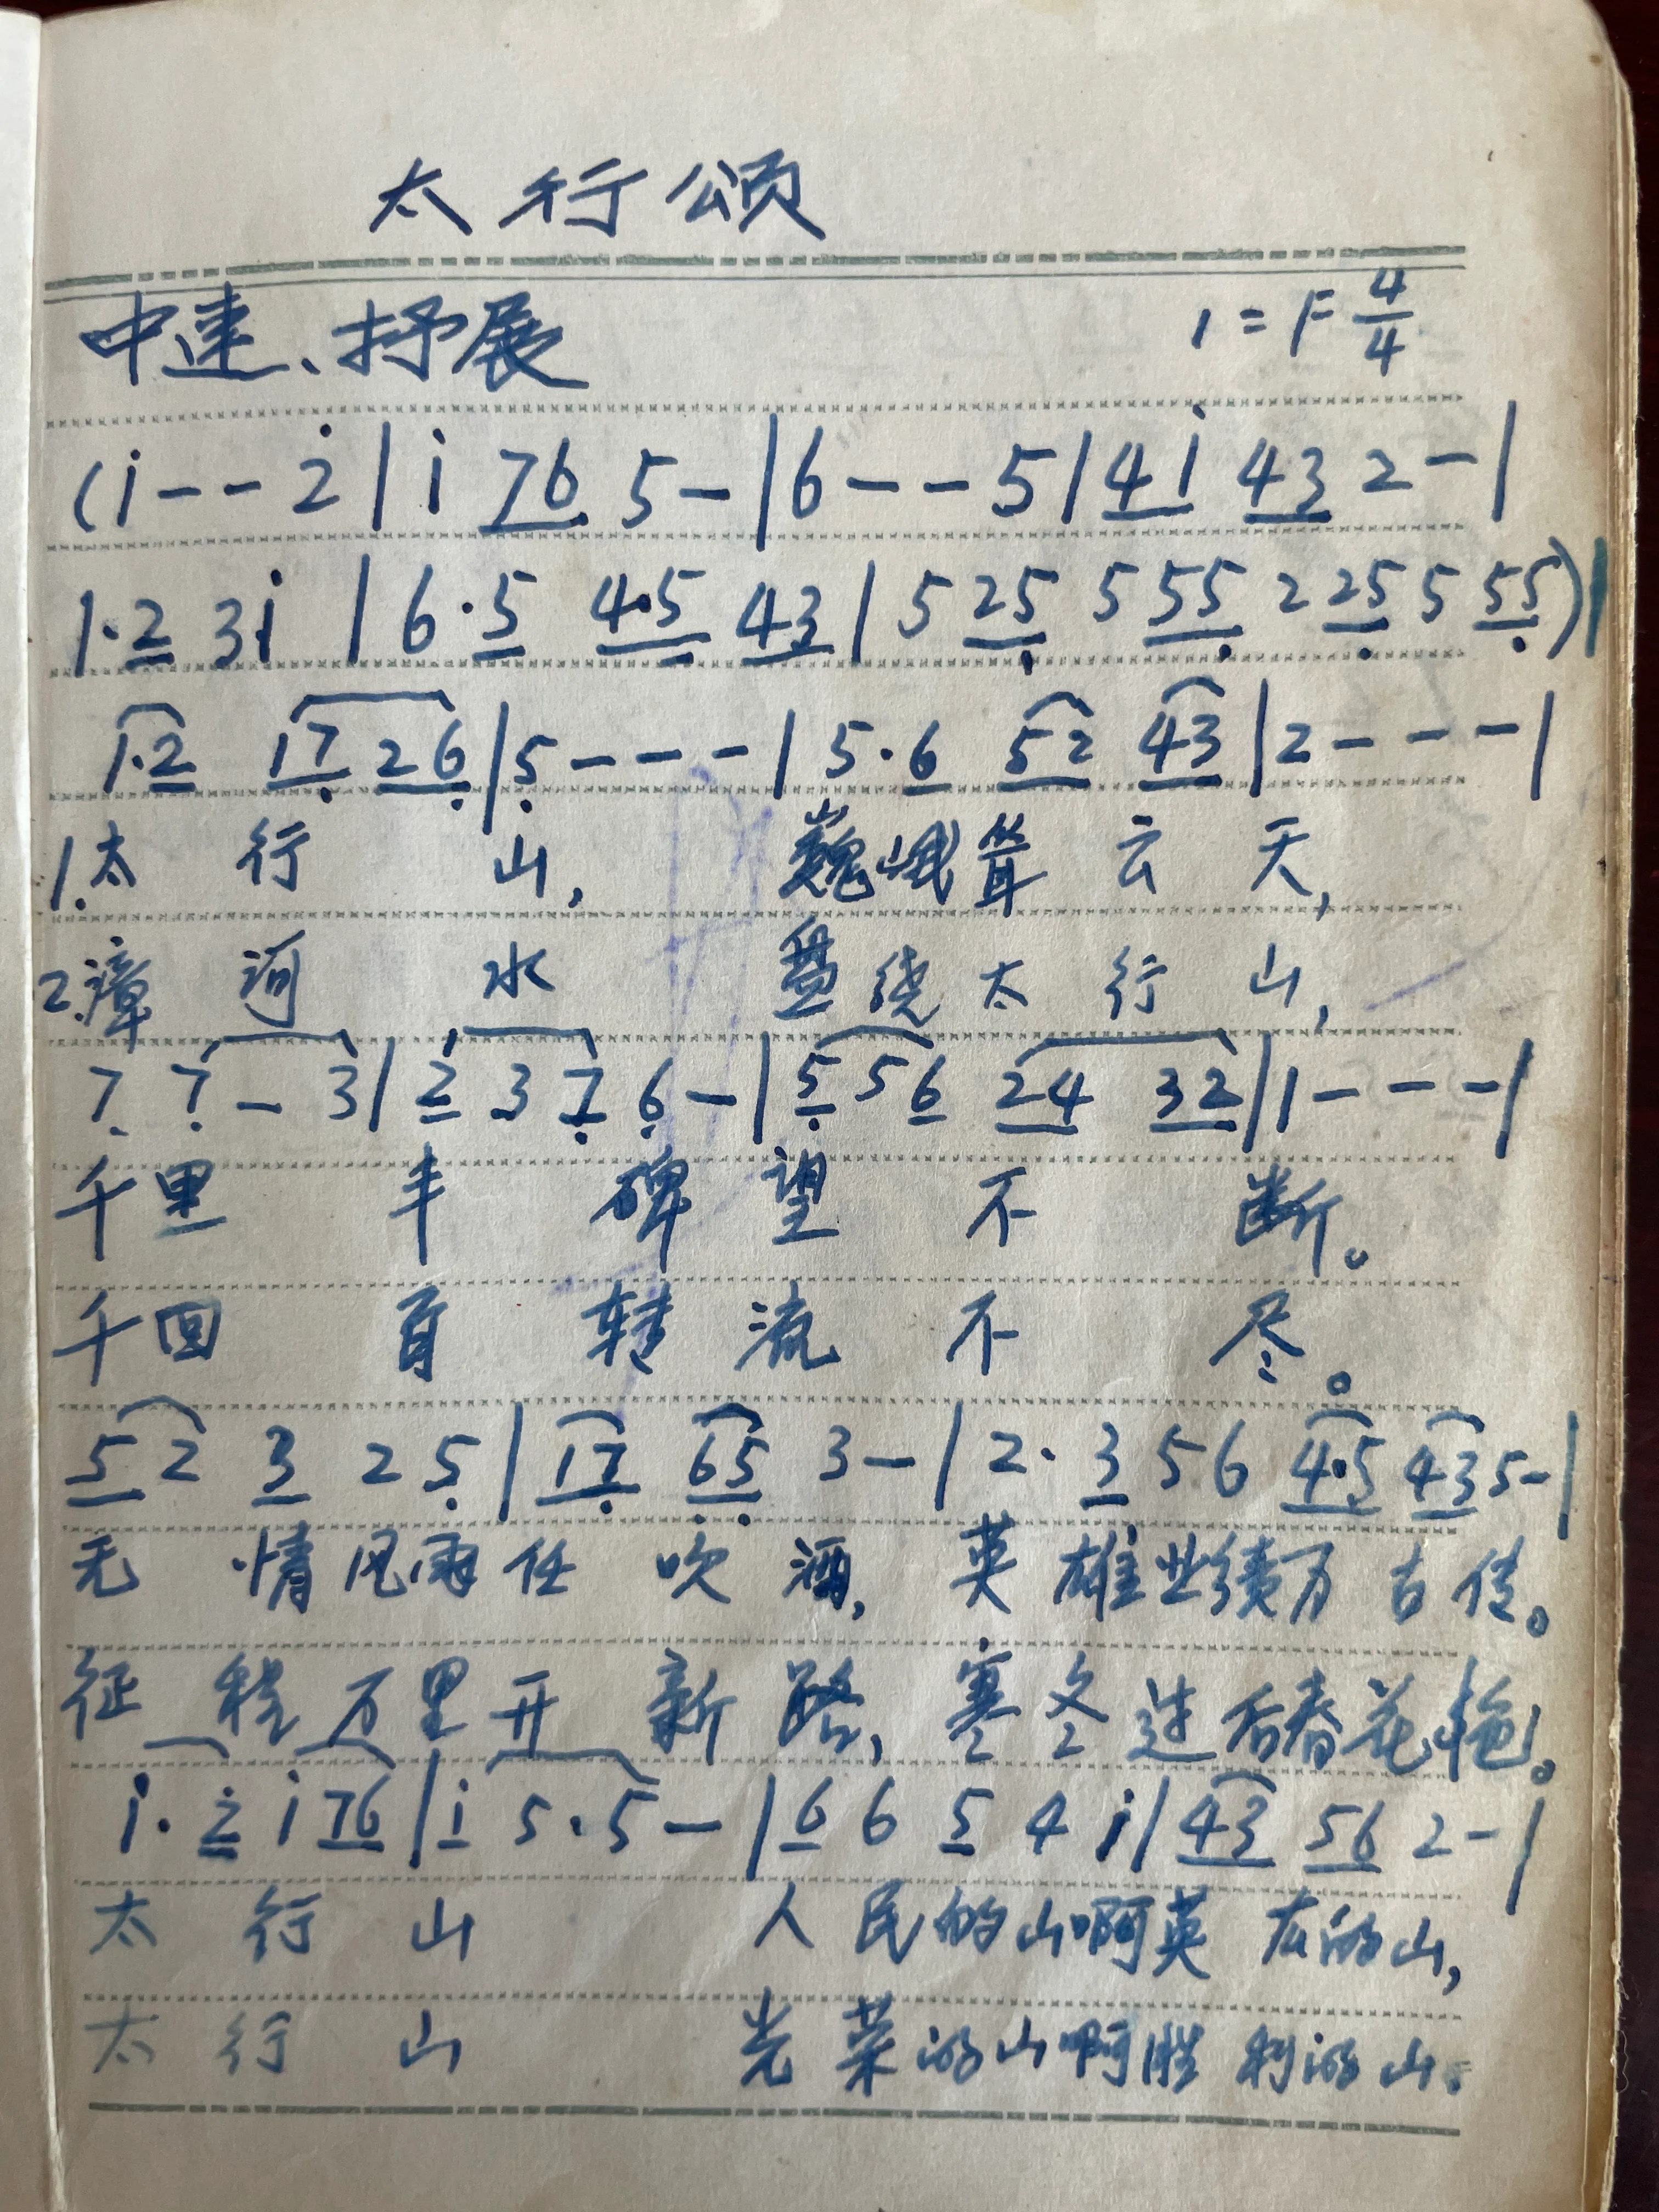 太行颂
中速、抒展 1=F 4/4
(i - - 2̇ | i 76 5 - | 6 - - 5 | 4i 43 2 - |
1·2 3i | 6·5 4·5 43 | 5 25 5 55 2 25 5 55) |
1·2 17 26 | 5 - - - | 5·6 52 43 | 2 - - - |
1.太行山,巍峨耸云天,
2.漳河水 盘绕太行山,
7 7 - 3 | 2 3 7 6 - | 5 5 6 24 32 | 1 - - - |
千里丰碑望不断。
千回百转流不尽。
5 2 3 2 5 | 17 65 3 - | 2· 3 5 6 4·5 43 5 - |
无情风雨任吹洒,英雄业绩万古传。
征程万里开新路,寒冬过后春花艳。
i· 2̇ i 76 | i 5·5 - | 6 6 5 4 i | 43 56 2 - |
太行山 人民的山啊英雄的山,
太行山 光荣的山啊胜利的山。